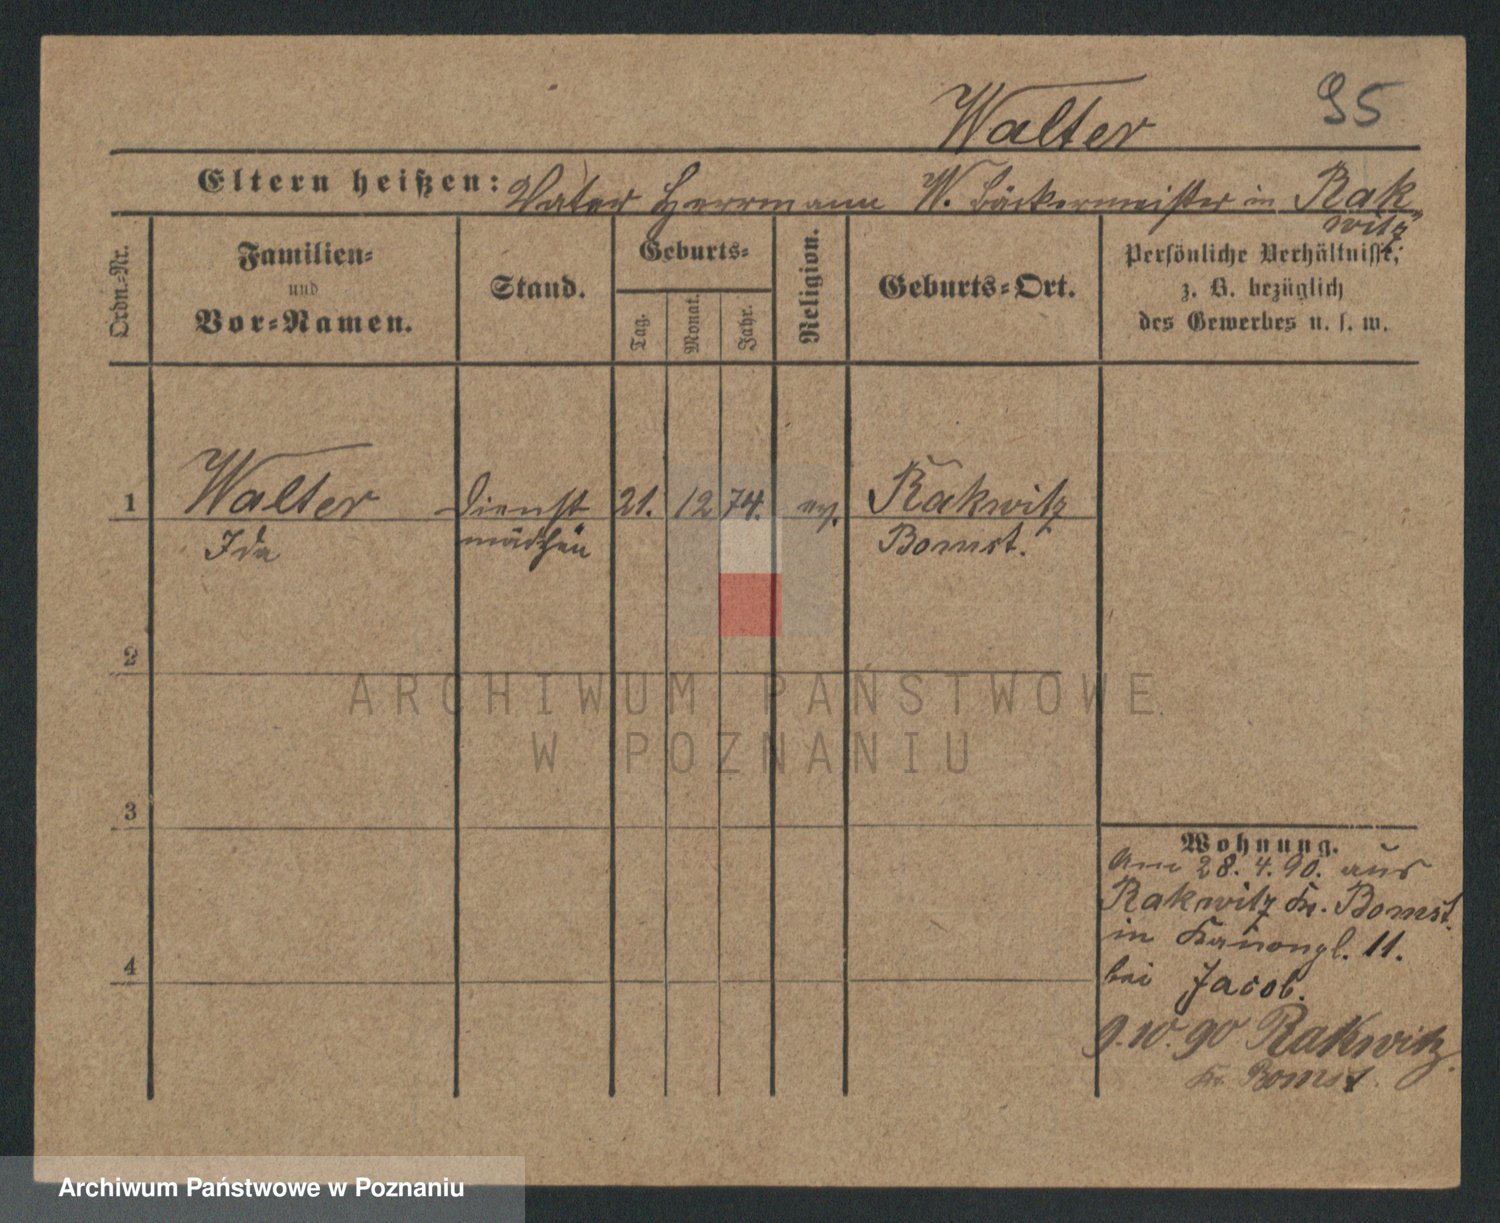 Walter 95
Eltern heißen: Vater Herrmann W. Bäckermeister in Rak
witz
Ordn.-Nr.
Familien-
und
Vor-Namen.
Stand.
Geburts-
Tag.
Monat.
Jahr.
Religion.
Geburts-Ort.
Persönliche Verhältnisse,
z. B. bezüglich
des Gewerbes u. s. w.
1 Walter Dienst 21. 12 74. ev. Rakwitz
Ida mädchen Bomst.
2
3
4
Wohnung.
Am 28. 4. 90. aus
Rakwitz Kr. Bomst.
in Kanongl. 11.
bei Jacob.
9.10.90 Rakwitz
Kr. Bomst.
ARCHIWUM PAŃSTWOWE
W POZNANIU
Archiwum Państwowe w Poznaniu